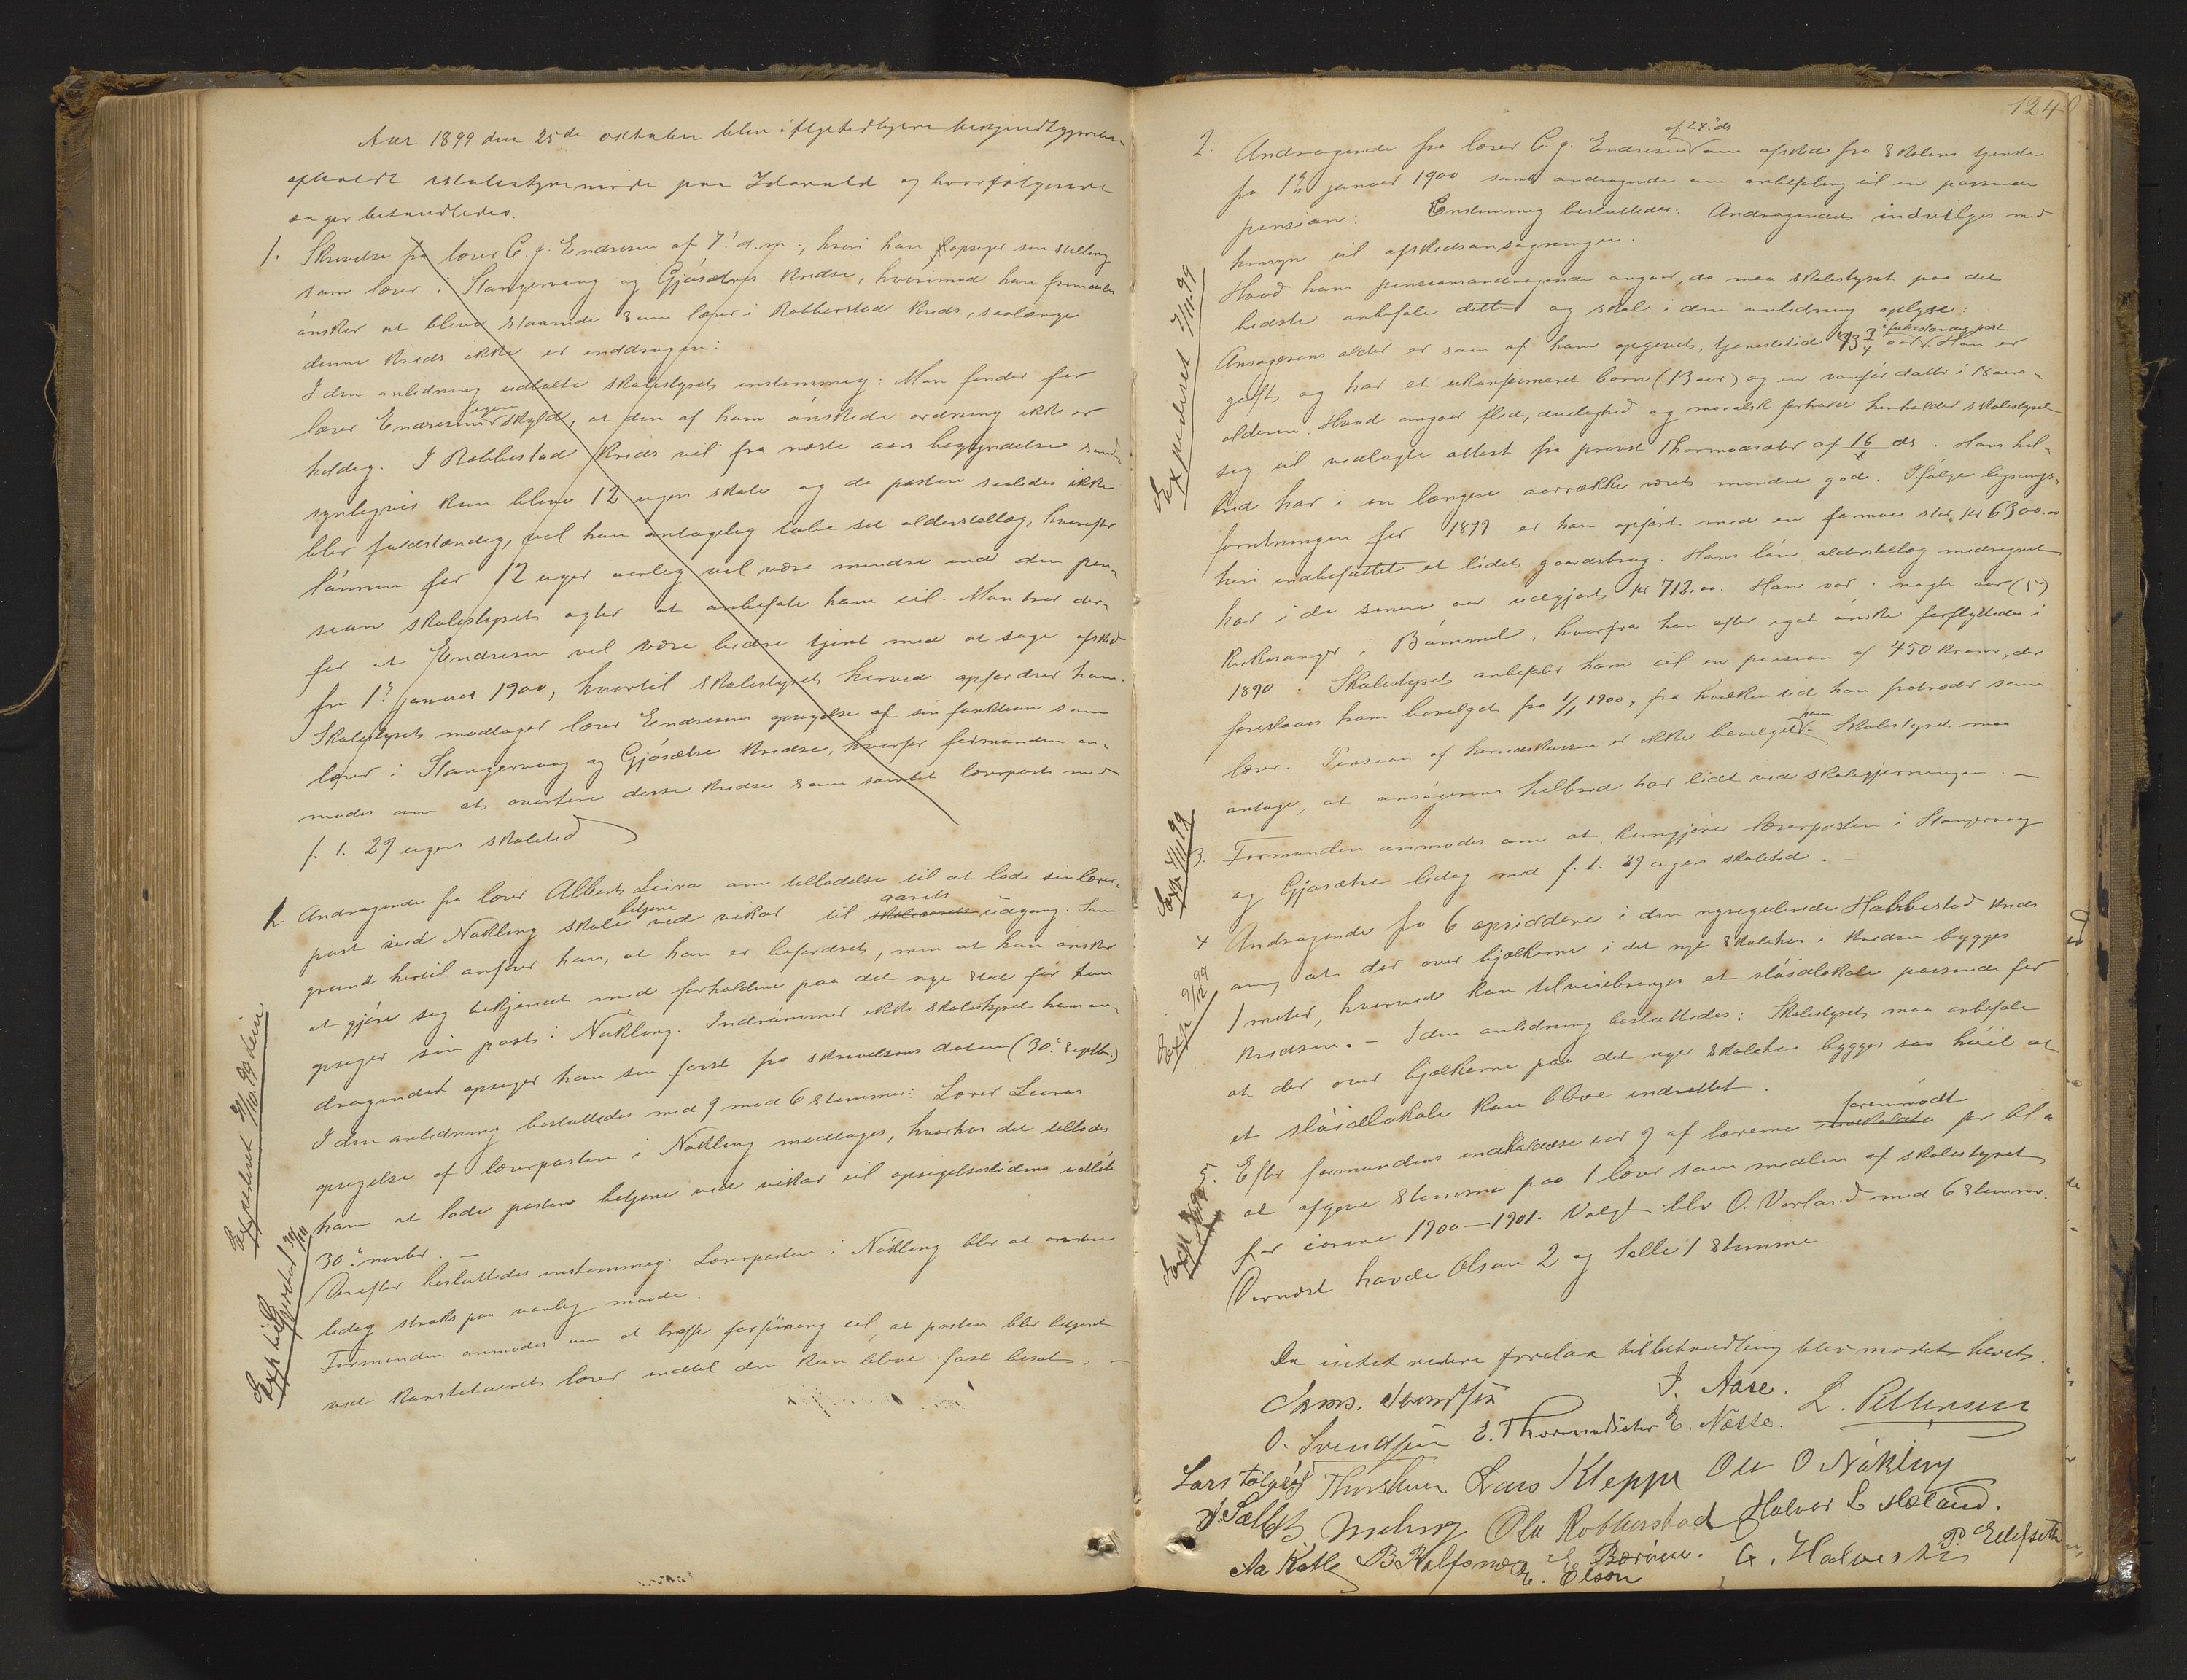 Aar 1899 den 25de oktober blev ifølge tidligere bekjendtgjørelse
afholdt skolestyremøde paa Idavald og hvor følgende
sager behandledes.
1. Skrivelse fra lærer C. J. Endresen af 7de d.m., hvori han opsiger sin stilling
som lærer i Stangervaag og Gjøsæters kredse, hvorimod han fremdeles
ønsker at blive staaende som lærer i Robberstad kreds, saalænge
denne kreds ikke er inddragen:
I den anledning udtalte skolestyret enstemmig: Man finder for
lærer Endresens egen skyld, at den af ham ønskede ordning ikke er
heldig. I Robberstad kreds vil fra næste aars begyndelse sand-
synligvis kun blive 12 ugers skole og da posten saaledes ikke
bliver fuldstændig, vil han antagelig tabe sit alderstillæg, hvorefter
lønnen for 12 uger aarlig vil være mindre end den pen-
sion skolestyret agter at anbefale ham til. Man tror der-
for at Endresen vil være bedre tjent med at søge afsked
fra 1ste januar 1900, hvortil skolestyret herved opfordrer ham.
Skolestyret modtager lærer Endresens opsigelse af sin funktion som
lærer i Stangervaag og Gjøsætre kredse, hvorfor formanden an-
modes om at avertere disse kredse som samlet lærerpost med
f. t. 29 ugers skoletid
1. Andragende fra lærer Albert Leira om tilladelse til at lade sin lærer-
post ved Nøkling skole betjene ved vikar til skoleaarets aarets udgang. Som
grund hertil anfører han, at han er befordret, men at han ønsker
at gjøre sig bekjendt med forholdene paa det nye sted før han
opsiger sin post i Nøkling. Indrømmer ikke skolestyret ham an-
dragendet opsiger han sin post fra skrivelsens datum (30. septbr.)
I den anledning besluttedes med 9 mod 6 stemmer: Lærer Leiras
opsigelse af lærerposten i Nøkling modtages, hvorhos det tillades
ham at lade posten betjene ved vikar til opsigelsestidens udløb
30. novbr. —
Derefter besluttedes enstemmig: Lærerposten i Nøkling blir at avertere
ledig straks paa vanlig maade.
Formanden anmodes om at træffe forføining til, at posten blir betjent
ved konstitueret lærer indtil den kan blive fast besat. —
Expederet 31/10 99 Leira
Expederet 31/10
124
2. Andragende fra lærer C. J. Endresen af 24de ds om afsked fra skolens tjeneste
fra 1ste januar 1900 samt andragende om anbefaling til en passende
pension: Enstemmig besluttedes: Andragendet indvilges med
hensyn til afskedsansøgningen.
Hvad hans pensionsandragende angaar, da maa skolestyret paa det
bedste anbefale dette og skal i den anledning oplyse:
Ansøgerens alder er som af ham opgivet, tjenestetid 43 3/4 aar i fuldstændig post. Han er
gift og har et ukonfirmeret barn (13 aar) og en vanfør datter i 18 aars-
alderen. Hvad angaar flid, duelighed og moralsk forhold henholder skolestyret
sig til vedlagte attest fra provst Thormodsæter af 16/x ds. Hans hel-
bred har i en længere aarrække været mindre god. Ifølge ligning-
forretningen for 1899 er han opført med en formue stor kr 6300.00
heri indbefattet et lidet gaardsbrug. Hans løn alderstillæg medregnet
har i de senere aar udgjort kr 712.00. Han var i nogle aar (5)
kirkesanger i Bømmel, hvorfra han efter eget ønske forflyttedes i
1890. Skolestyret anbefaler ham til en pension af 450 kroner, der
foreslaaes ham bevilget fra 1/1 1900, fra hvilken tid han fratræder som
lærer. Pension af herredskassen er ikke bevilget ham. Skolestyret maa
antage, at ansøgerens helbred har lidt ved skolegjerningen. —
Expederet 7/11 99
3. Formanden anmodes om at kundgjøre lærerposten i Stangervaag
og Gjøsætre ledig med f. t. 29 ugers skoletid. —
Exp. 7/11 99
4 Andragende fra 6 opsiddere i den nyregulerede Habbestad kreds
om, at der over bjælkerne i det nye skolehus i kredsen bygges
1 meter, hvorved kan tilveiebringes et sløidlokale passende for
kredsen. — I den anledning besluttedes: Skolestyret maa anbefale
at der over bjælkerne paa det nye skolehus bygges saa høit at
et sløidlokale kan blive indrettet.
Exp. 9/12 99
5. Efter formandens indkaldelse var 9 af lærerne indkaldte fremmødt for bl. a
at afgive stemme paa 1 lærer som medlem af skolestyret
for aarene 1900—1901. Valgt blev O. Vorland med 6 stemmer.
Dernæst havde Olson 2 og Sælle 1 stemme.
Da intet videre forelaa til behandling blev mødet hævet.
J. Aase.
O. Svendsen E. Thormodsæter E. Næsse. L. Pettersen
Lars Kleppe Ole O Nøkling
Ole Robberstad Halvor L Mæland.
E. Bærøen. G. Halvorsen P. Ellefsen
E. Olson